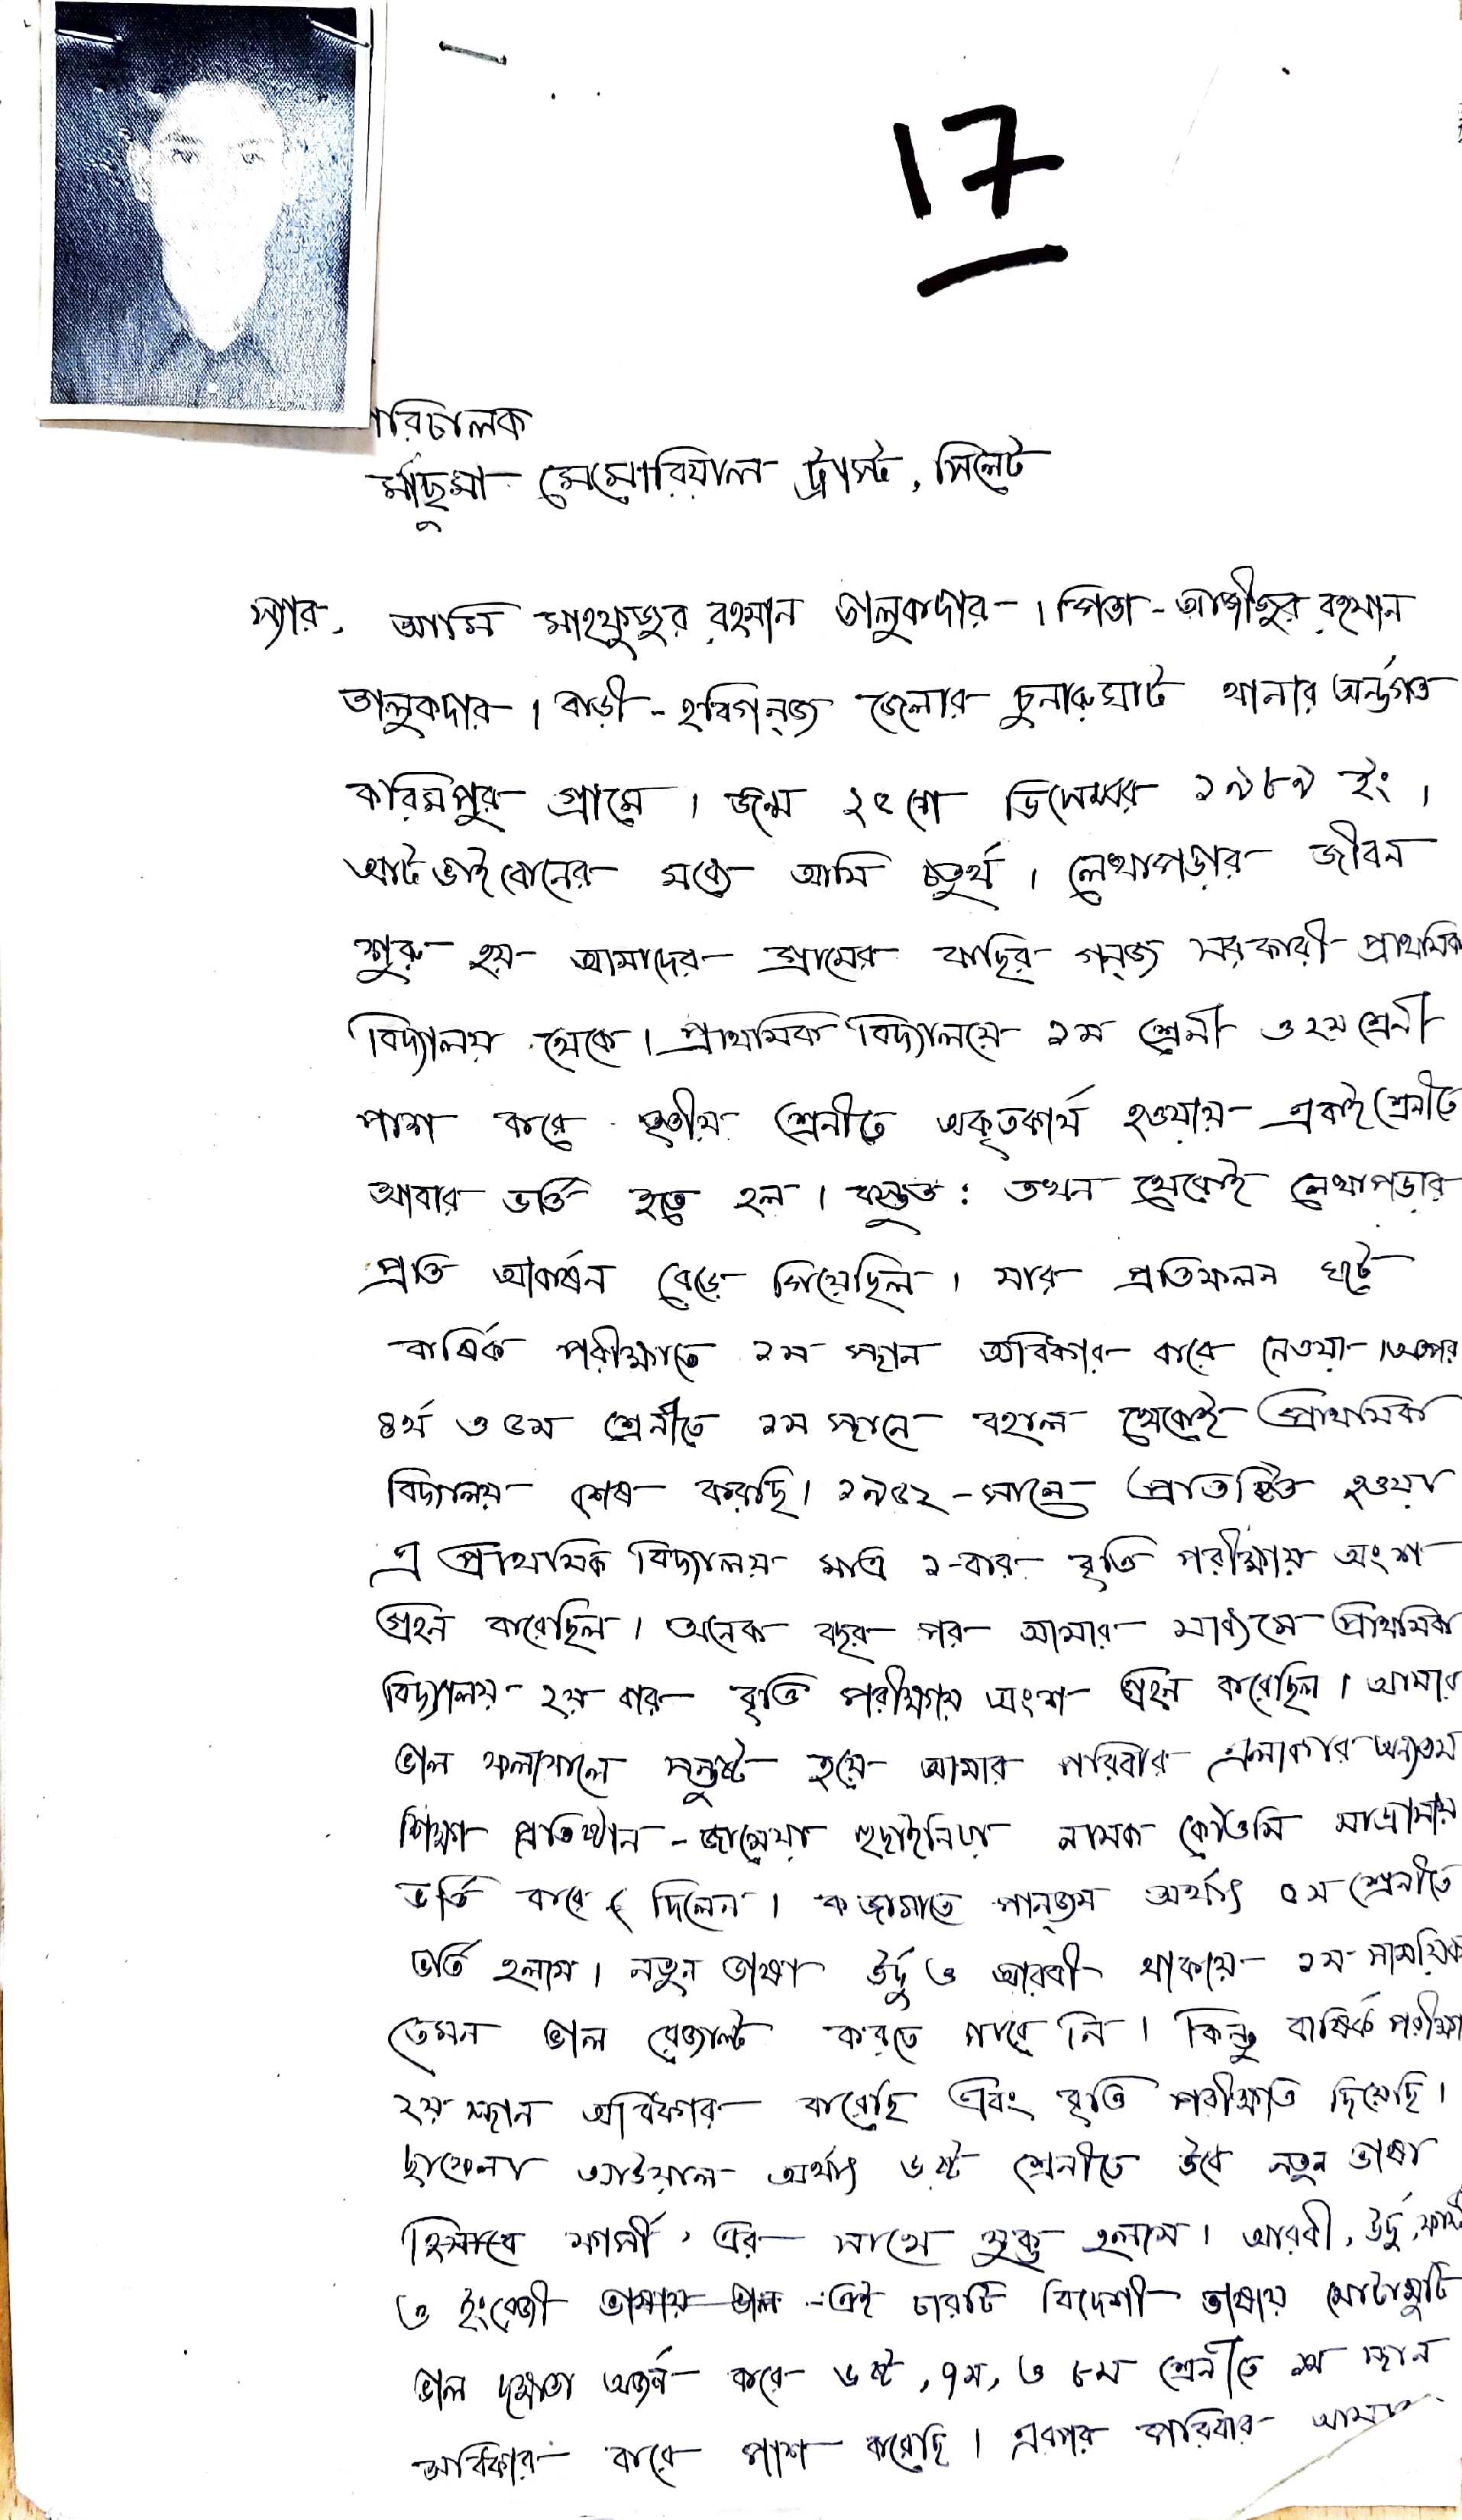 17
পরিচালক
মাছুমা মেমোরিয়াল ট্রাস্ট, সিলেট
স্যার, আমি মাহফুজুর রহমান তালুকদার। পিতা - আজীজুর রহমান
তালুকদার। বাড়ী - হবিগন্জ জেলার চুনারুঘাট থানার অর্ন্তগত
করিমপুর গ্রামে। জন্ম ২৫শে ডিসেম্বর ১৯৮৯ ইং।
আট ভাই বোনের মধ্যে আমি চতুর্থ। লেখাপড়ার জীবন
শুরু হয় আমাদের গ্রামের কাছির গন্জ সরকারী প্রাথমিক
বিদ্যালয় থেকে। প্রাথমিক বিদ্যালয়ে ১ম শ্রেনী ও ২য় শ্রেনী
পাশ করে তৃতীয় শ্রেনীতে অকৃতকার্য হওয়ায় একই শ্রেনীতে
আবার ভর্তি হতে হল। বস্তুত: তখন থেকেই লেখাপড়ার
প্রতি আকর্ষন বেড়ে গিয়েছিল। যার প্রতিফলন ঘটে
বার্ষিক পরীক্ষাতে ১ম স্হান অধিকার করে নেওয়া।
৪র্থ ও ৫ম শ্রেনীতে ১ম স্হানে বহাল থেকেই প্রাথমিক
বিদ্যালয় শেষ করছি। ১৯৫২ - সালে প্রতিষ্ঠিত হওয়া
এ প্রাথমিক বিদ্যালয় মাত্র ১-বার বৃত্তি পরীক্ষায় অংশ
গ্রহন করেছিল। অনেক বছর পর আমার মাধ্যমে প্রাথমিক
বিদ্যালয় ২য় বার বৃত্তি পরীক্ষায় অংশ গ্রহন করেছিল। আমার
ভাল ফলাফলে সন্তুষ্ট হয়ে আমার পরিবার এলাকার অন্যতম
শিক্ষা প্রতিষ্ঠান - জামেয়া নামক কৌওমি মাদ্রাসায়
ভর্তি করে দিলেন। জামাতে পান্জম অর্থাৎ ৫ম শ্রেনীতে
ভর্তি হলাম। নতুন ভাষা উর্দু ও আরবী থাকায় ১ম সাময়িক
তেমন ভাল রেজাল্ট করতে পারে নি। কিন্তু বার্ষিক পরীক্ষা
২য় স্হান অধিকার করেছি এবং বৃত্তি পরীক্ষাতি দিয়েছি।
ছাফেলা আউয়াল অর্থাৎ ৬ষ্ট শ্রেনীতে উঠে নতুন ভাষা
হিসাবে ফার্সী, এর সাথে যুক্ত হলাম। আরবী, উর্দু, ফার্সী
ও ইংরেজী ভাষায় ভাল - এই চারটি বিদেশী ভাষায় মোটামুটি
ভাল দক্ষতা অর্জন করে ৬ষ্ট, ৭ম, ও ৮ম শ্রেনীতে ১ম স্হান
অধিকার করে পাশ করেছি। এরপর পরিবার